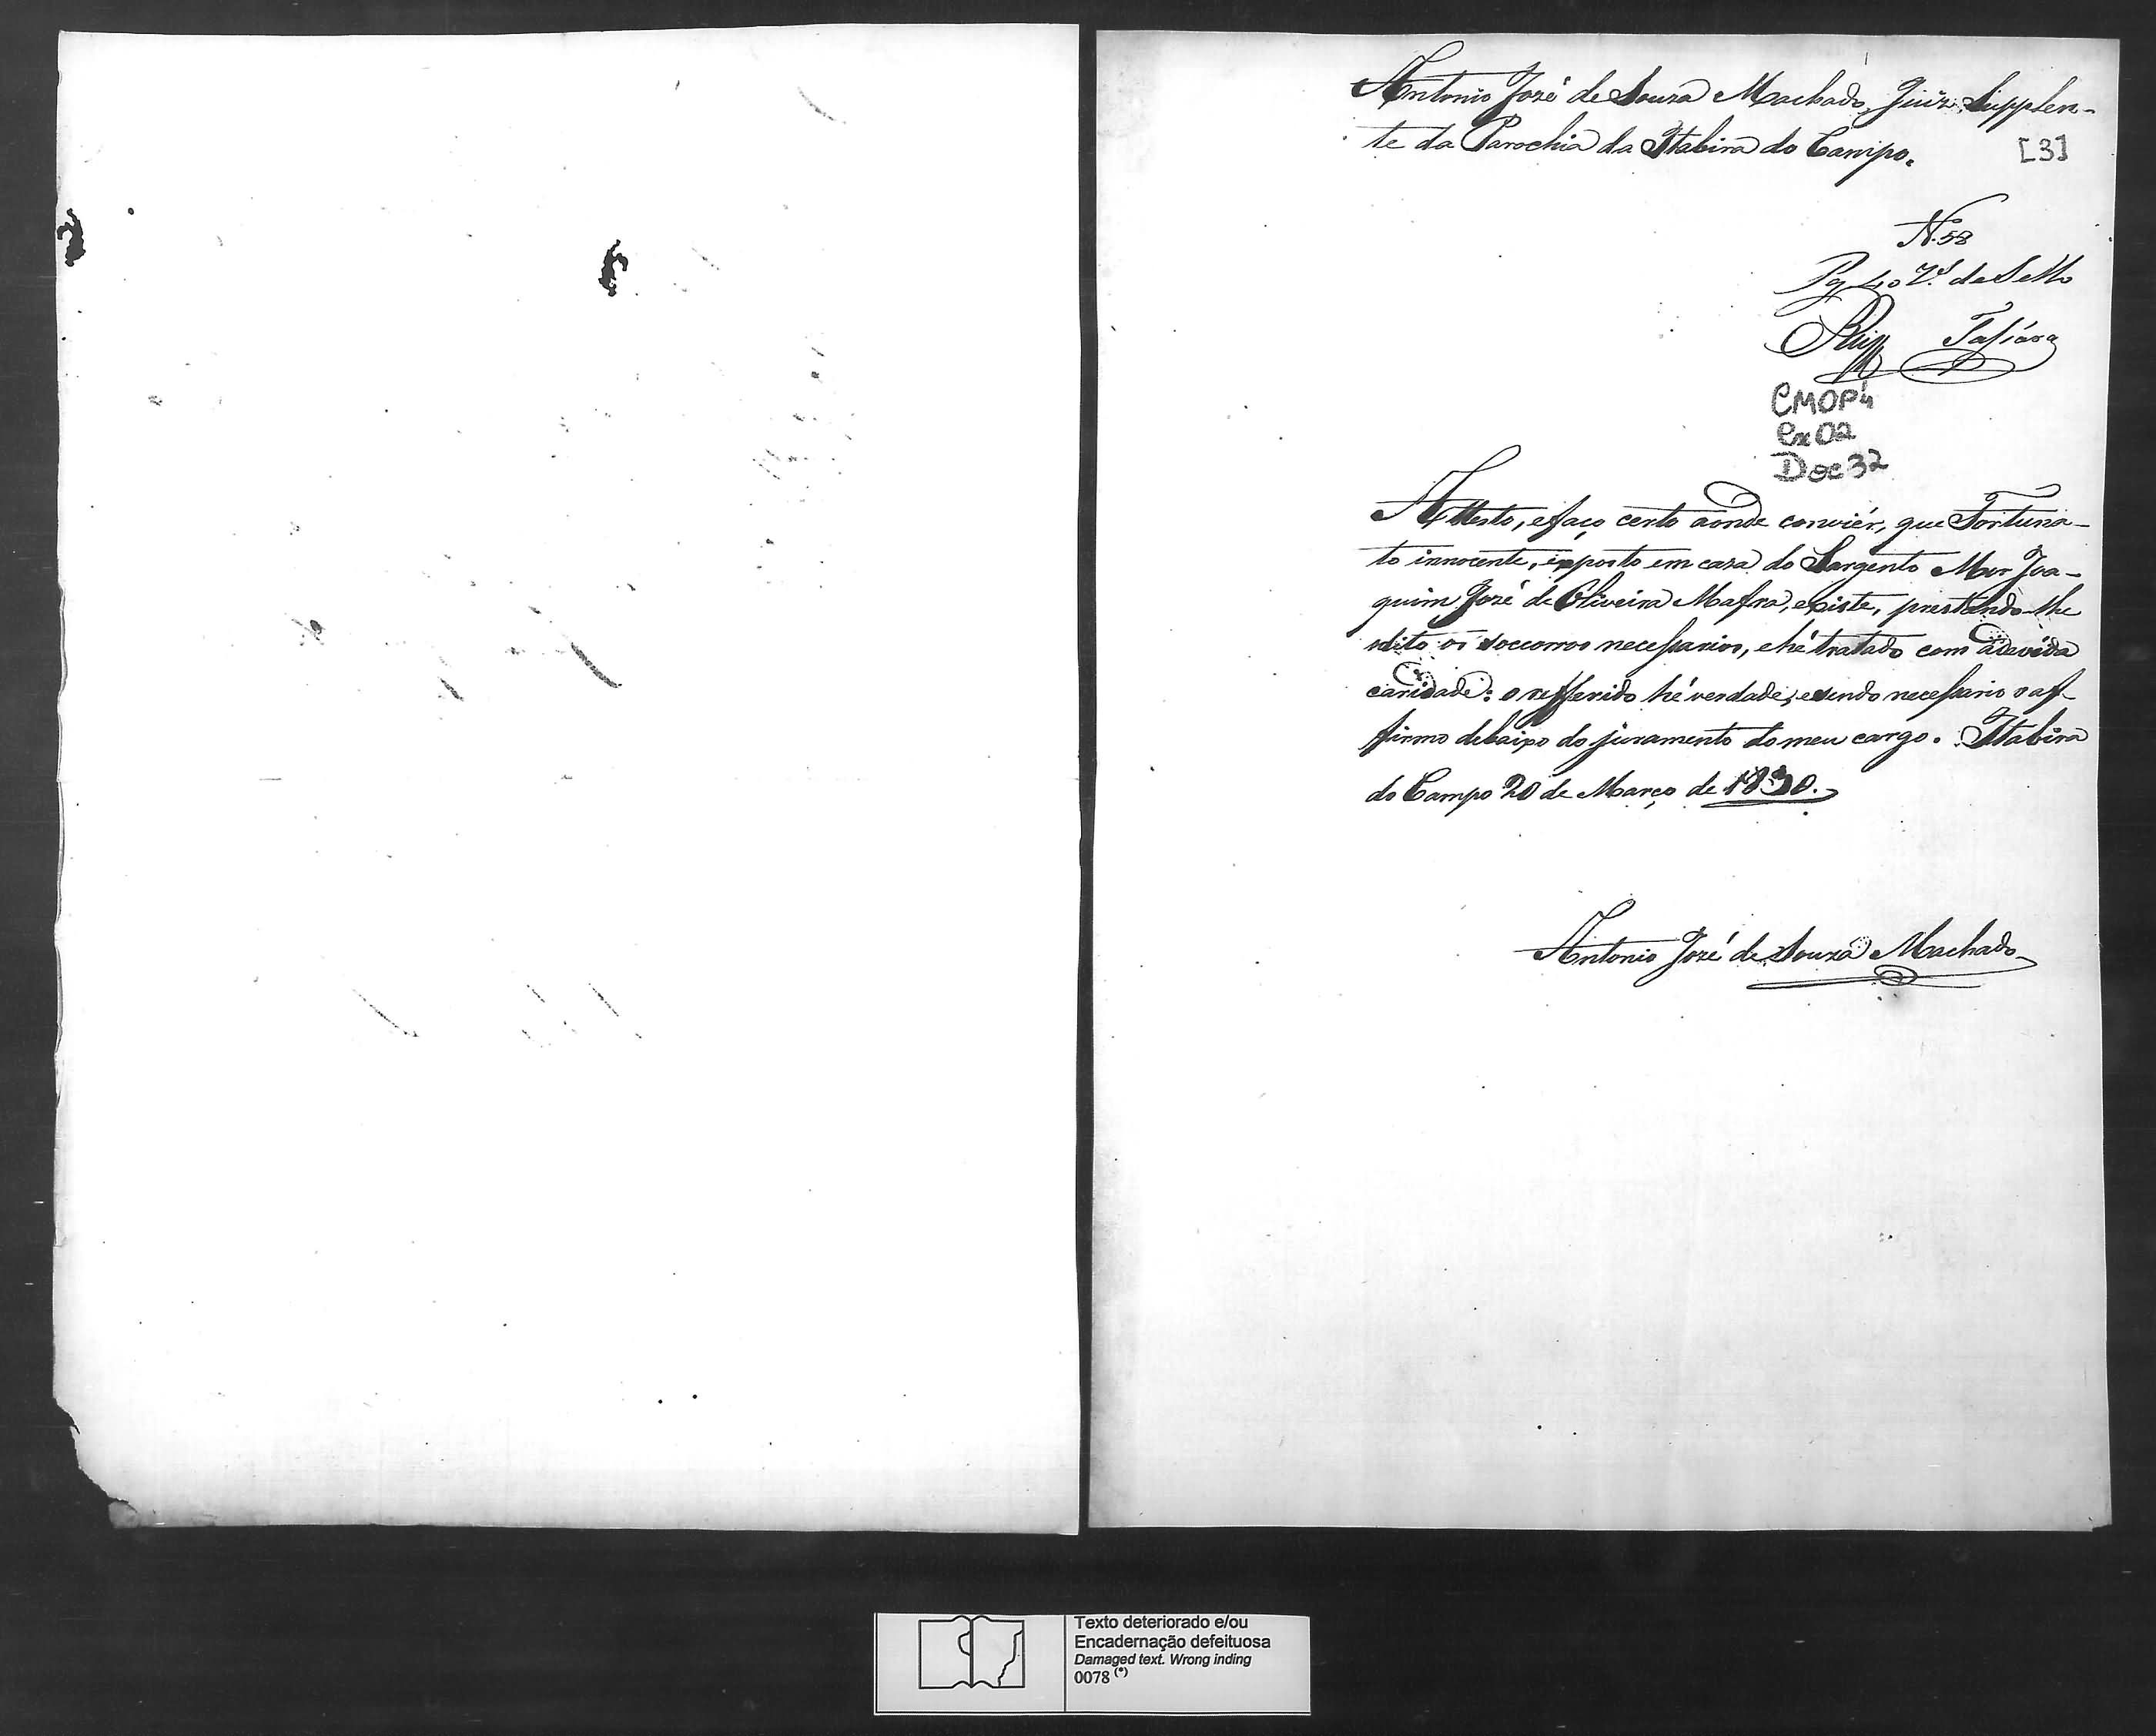 Antonio José de Souza Machado, Juiz Supplen-
te da Parochia da Itabira do Campo.
[3]
N.º 58
Pg 40 r.s de Sello
CMOP4
Cx02
Doc32
Attesto, e faço certo aonde conviér, que Fortuna-
to innocente, exposto em caza do Sargento Mor Joa-
quim José de Oliveira Mafra, existe, prestando-lhe
odito os soccorros necessarios, e hé tratado com adevida
caridade: o refferido hé verdade, e sendo necessario o af-
firmo debaixo do juramento do meu cargo. Itabira
do Campo 20 de Março de 1830.
Antonio José de Souza Machado
Texto deteriorado e/ou
Encadernação defeituosa
Damaged text. Wrong inding
0078 (*)